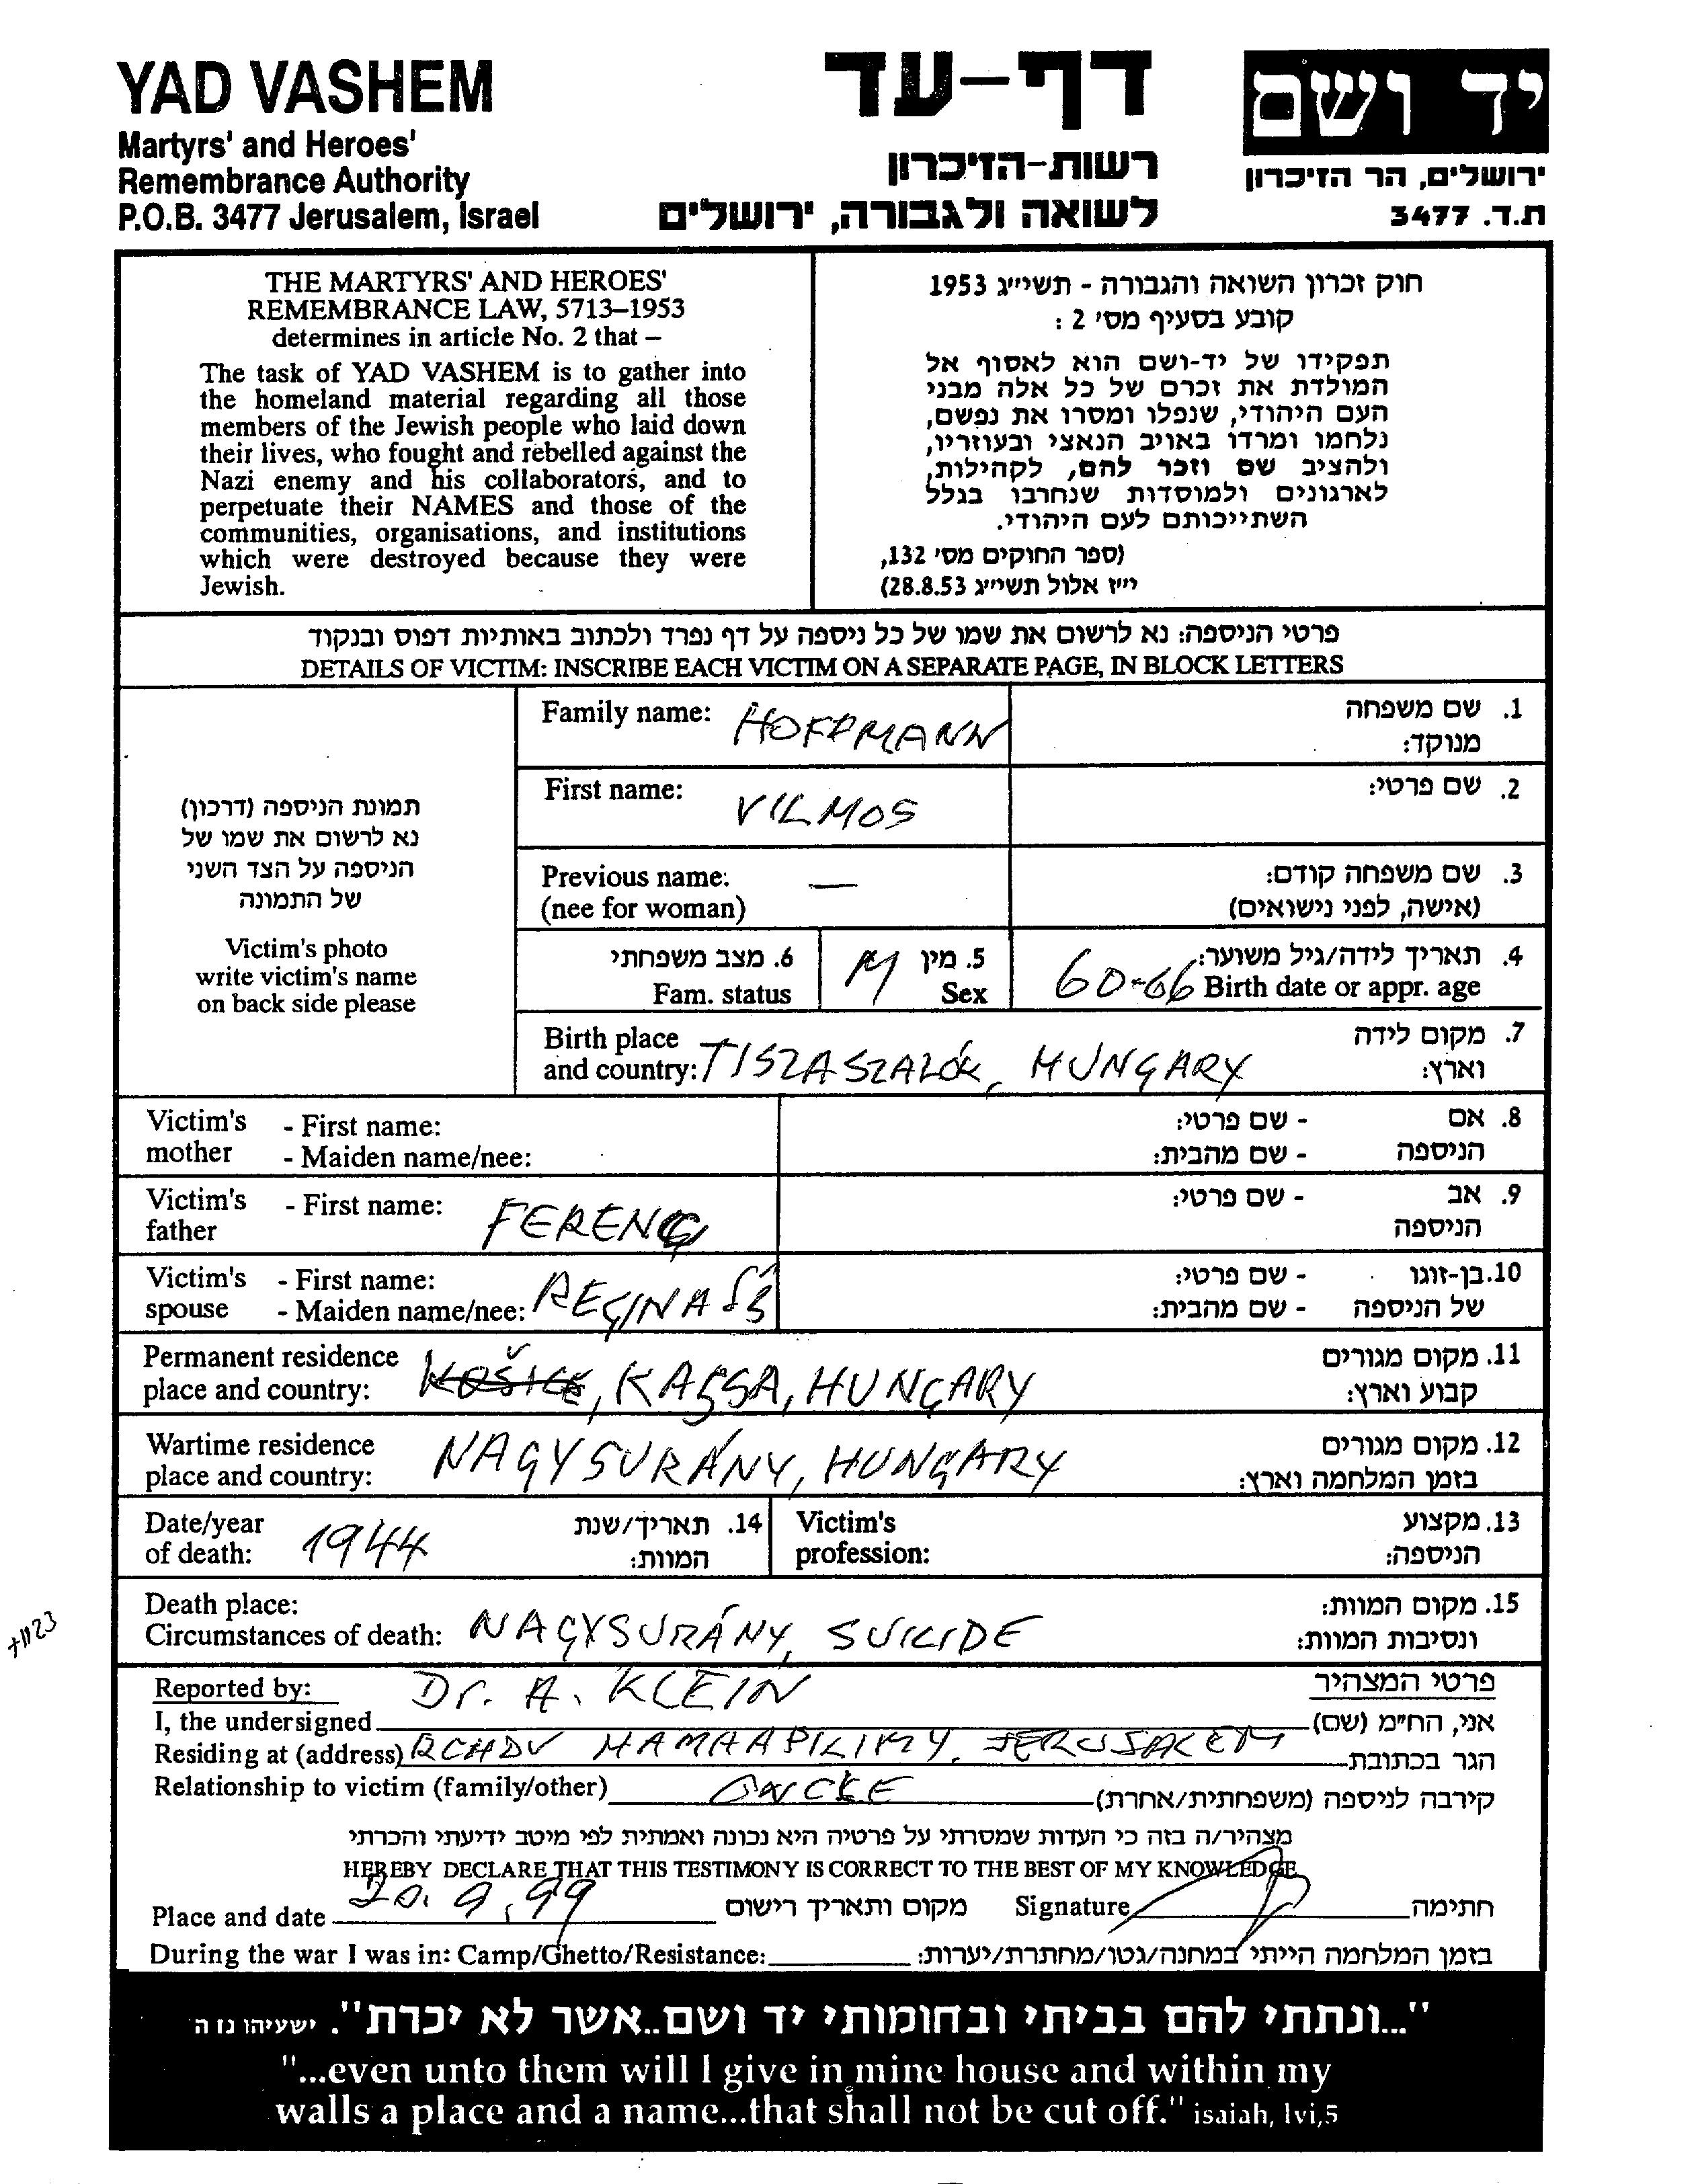 YAD VASHEM
Martyrs' and Heroes'
Remembrance Authority
P.O.B. 3477 Jerusalem, Israel
דף-עד
רשות-הזיכרון
לשואה ולגבורה, ירושלים
יד ושם
ירושלים, הר הזיכרון
ת.ד. 3477
THE MARTYRS' AND HEROES'
REMEMBRANCE LAW, 5713–1953
determines in article No. 2 that –
The task of YAD VASHEM is to gather into
the homeland material regarding all those
members of the Jewish people who laid down
their lives, who fought and rebelled against the
Nazi enemy and his collaborators, and to
perpetuate their NAMES and those of the
communities, organisations, and institutions
which were destroyed because they were
Jewish.
חוק זכרון השואה והגבורה - תשי״ג 1953
קובע בסעיף מס׳ 2 :
תפקידו של יד-ושם הוא לאסוף אל
המולדת את זכרם של כל אלה מבני
העם היהודי, שנפלו ומסרו את נפשם,
נלחמו ומרדו באויב הנאצי ובעוזריו,
ולהציב שם וזכר להם, לקהילות,
לארגונים ולמוסדות שנחרבו בגלל
השתייכותם לעם היהודי.
(ספר החוקים מס׳ 132,
י״ז אלול תשי״ג 28.8.53)
פרטי הניספה: נא לרשום את שמו של כל ניספה על דף נפרד ולכתוב באותיות דפוס ובנקוד
DETAILS OF VICTIM: INSCRIBE EACH VICTIM ON A SEPARATE PAGE, IN BLOCK LETTERS
תמונת הניספה (דרכון)
נא לרשום את שמו של
הניספה על הצד השני
של התמונה
Victim's photo
write victim's name
on back side please
Family name: HOFFMANN 1. שם משפחה
מנוקד:
First name: VILMOS 2. שם פרטי:
Previous name: — 3. שם משפחה קודם:
(nee for woman) (אישה, לפני נישואים)
6. מצב משפחתי 5. מין M 4. תאריך לידה/גיל משוער:
Fam. status Sex 60-66 Birth date or appr. age
Birth place 7. מקום לידה
and country: TISZASZALÓK, HUNGARY וארץ:
Victim's - First name: - שם פרטי: 8. אם
mother - Maiden name/nee: - שם מהבית: הניספה
Victim's - First name: FERENC - שם פרטי: 9. אב
father הניספה
Victim's - First name: REGINA - שם פרטי: 10. בן-זוגו
spouse - Maiden name/nee: - שם מהבית: של הניספה
Permanent residence 11. מקום מגורים
place and country: KOŠICE, KASSA, HUNGARY קבוע וארץ:
Wartime residence 12. מקום מגורים
place and country: NAGYSURÁNY, HUNGARY בזמן המלחמה וארץ:
Date/year 1944 14. תאריך/שנת Victim's 13. מקצוע
of death: המוות: profession: הניספה:
Death place: 15. מקום המוות:
Circumstances of death: NAGYSURÁNY, SUICIDE ונסיבות המוות:
Reported by: Dr. A. KLEIN פרטי המצהיר
I, the undersigned אני, הח״מ (שם)
Residing at (address) HAMAAPILIM JERUSALEM הגר בכתובת
Relationship to victim (family/other) UNCLE קירבה לניספה (משפחתית/אחרת)
מצהיר/ה בזה כי העדות שמסרתי על פרטיה היא נכונה ואמתית לפי מיטב ידיעתי והכרתי
HEREBY DECLARE THAT THIS TESTIMONY IS CORRECT TO THE BEST OF MY KNOWLEDGE
Place and date 20.9.99 מקום ותאריך רישום Signature חתימה
During the war I was in: Camp/Ghetto/Resistance: בזמן המלחמה הייתי במחנה/גטו/מחתרת/יערות:
"...ונתתי להם בביתי ובחומותי יד ושם..אשר לא יכרת". ישעיהו נז ה
"...even unto them will I give in mine house and within my
walls a place and a name...that shall not be cut off." isaiah, lvi,5